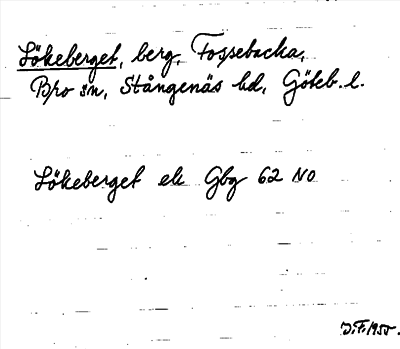 Lökeberget, berg, Fossebacka,
Bro sn, Stångenäs hd, Göteb. l.
Lökeberget ek Gbg 62 NO
J.F. 1955.